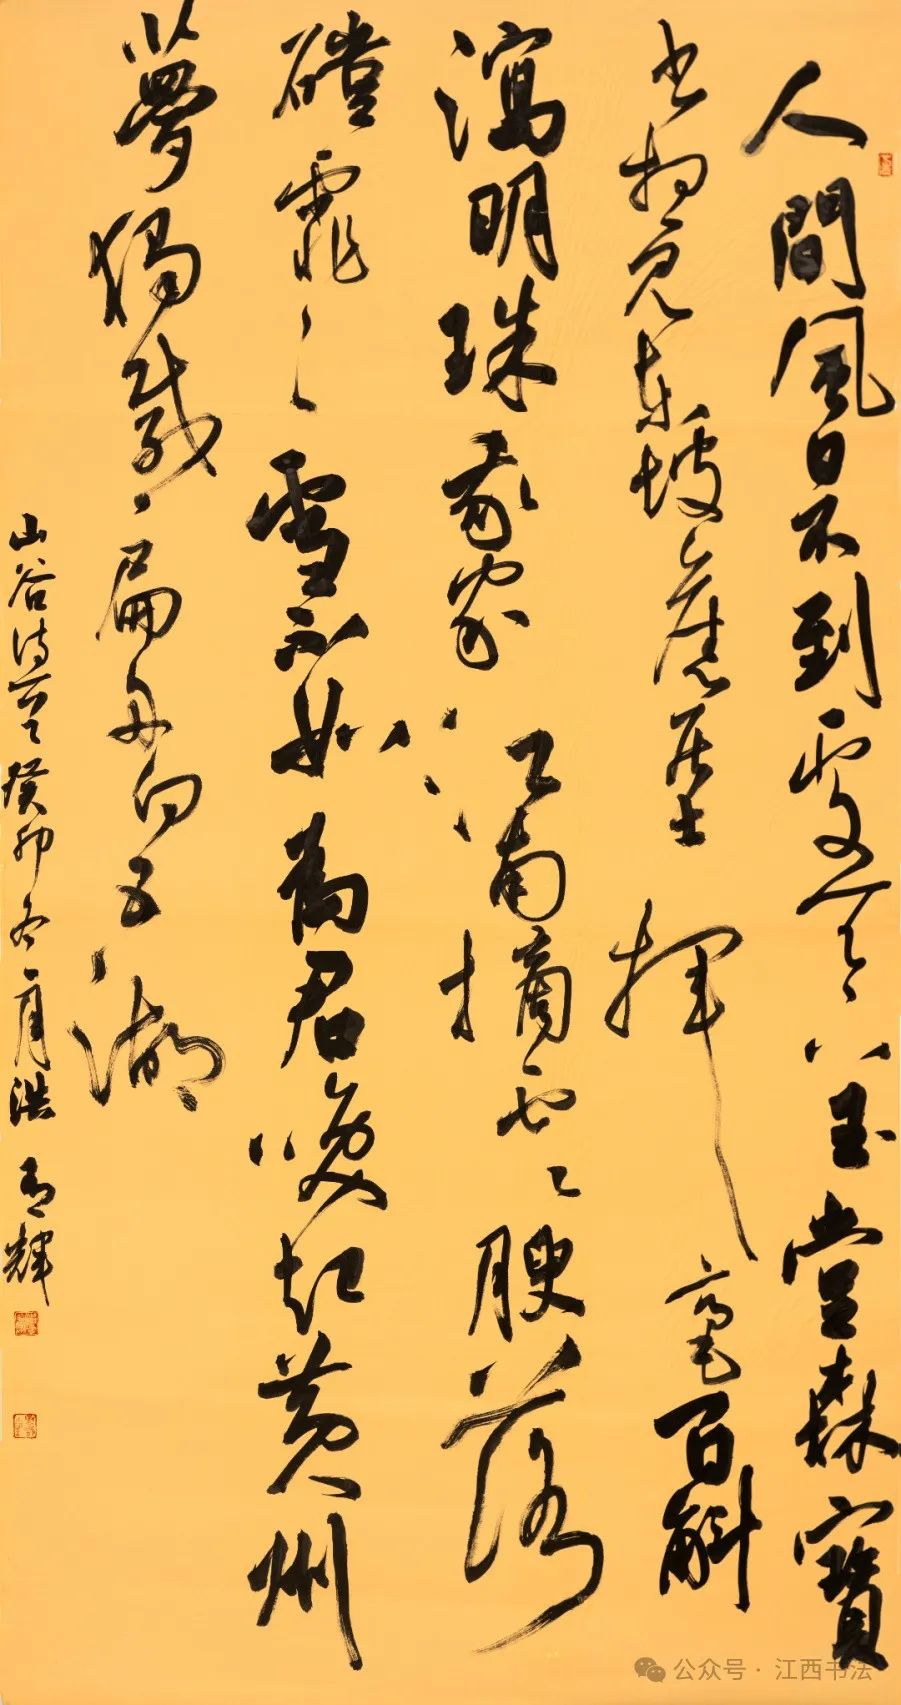 人間風日不到處天上玉堂森寶
書想見東坡舊居士揮毫百斛
瀉明珠我家江南摘雲腴落
磑霏々雪不如為君喚起黃州
夢獨載扁舟向五湖
山谷詩一首癸卯冬月洪有輝
公众号·江西书法